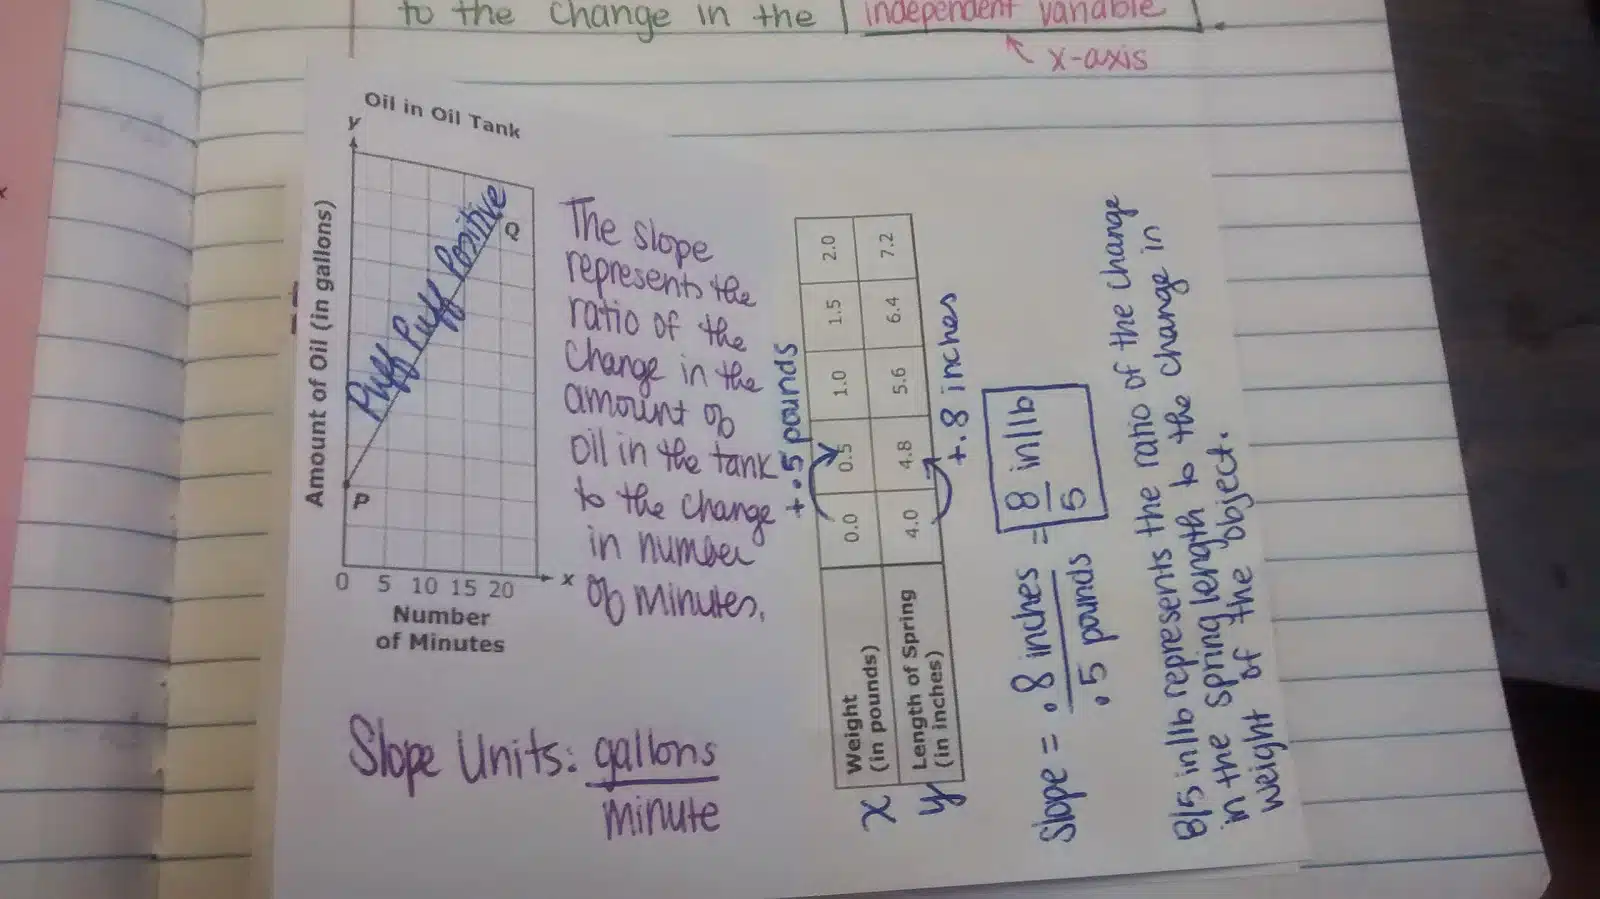 to the change in the independent variable.
x-axis
Oil in Oil Tank
y
Amount of Oil (in gallons)
Puff Puff Positive
Q
P
0 5 10 15 20
x
Number
of Minutes
The slope
represents the
ratio of the
change in the
amount of
oil in the tank
to the change
in number
of minutes.
Slope Units: gallons
minute
+.5 pounds
x Weight (in pounds) 0.0 0.5 1.0 1.5 2.0
y Length of Spring (in inches) 4.0 4.8 5.6 6.4 7.2
+.8 inches
Slope = .8 inches = 8 in/lb
.5 pounds 5
8/5 in/lb represents the ratio of the change
in the spring length to the change in
weight of the object.